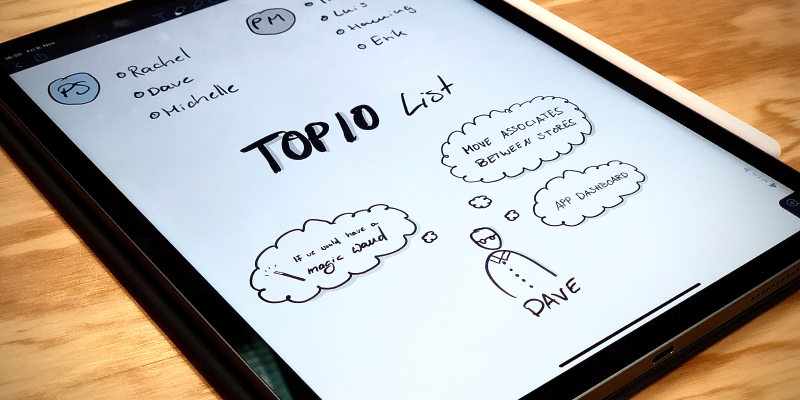 PS
Rachel
Dave
Michelle
PM
Luis
Henning
Erik
TOP10 List
MOVE ASSOCIATES
BETWEEN STORES
APP DASHBOARD
If we would have a
magic wand
DAVE